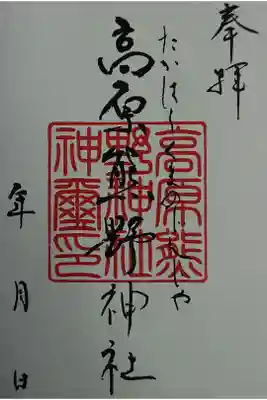 奉拝
たかはらくまのじんじゃ
高原熊野神社
高原熊
野神社
神璽印
年月日